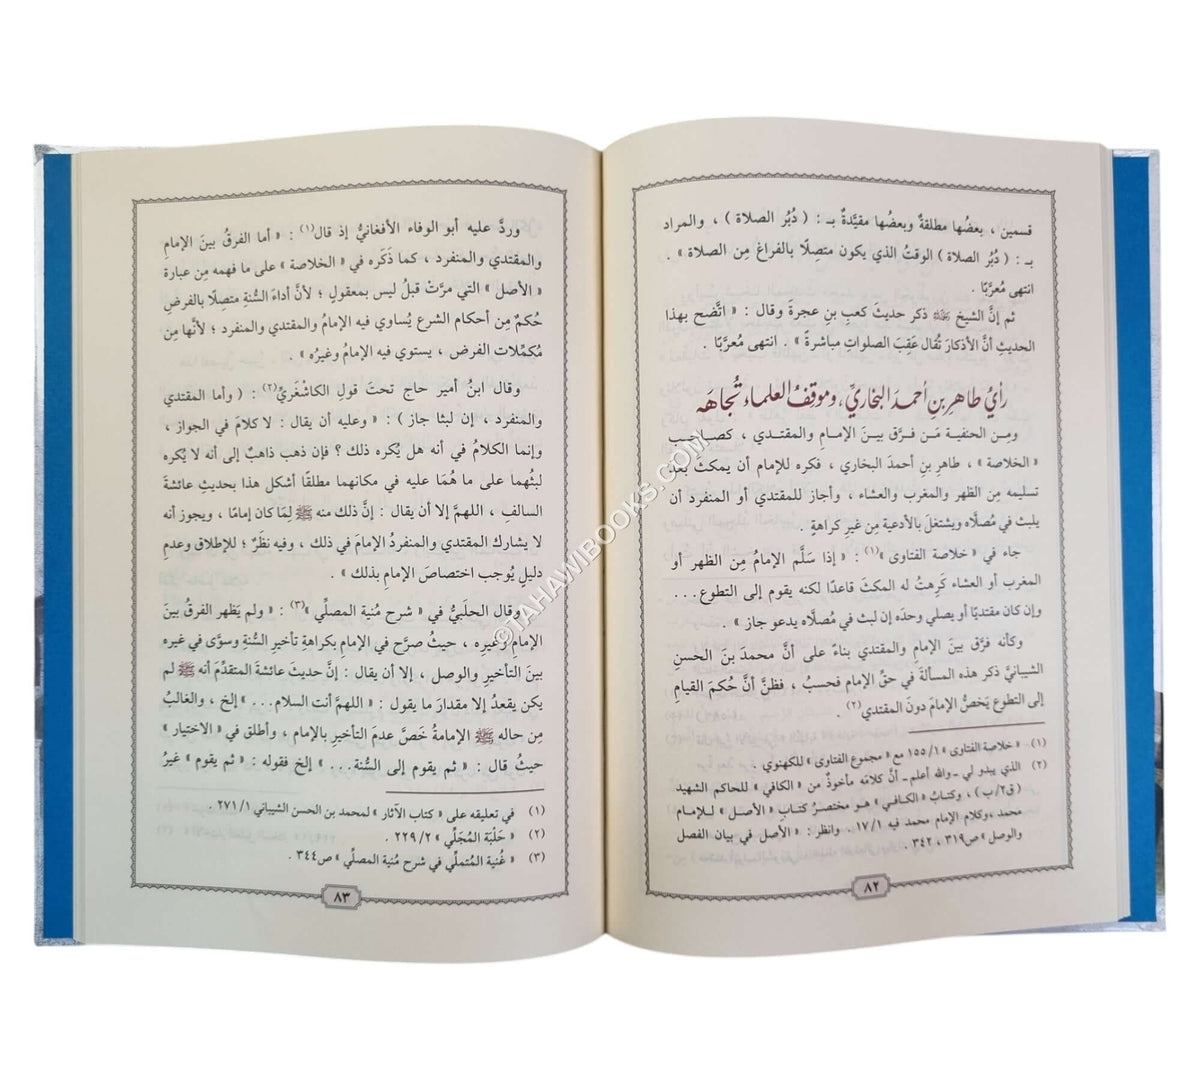 قسمين ، بعضُها مطلقةٌ وبعضُها مقيَّدةٌ بـ : ( دُبُر الصلاة ) ، والمراد
بـ : ( دُبُر الصلاة ) الوقتُ الذي يكون متصلًا بالفراغ مِن الصلاة » .
انتهى مُعرَّبًا .
ثم إنَّ الشيخ ﵀ ذكر حديثَ كعبِ بنِ عجرةَ وقال : « اتَّضح بهذا
الحديثِ أنَّ الأذكارَ تُقال عَقِبَ الصلواتِ مباشرةً » . انتهى مُعرَّبًا .
رأيُ طاهرِ بنِ أحمدَ البخاريِّ ، وموقفُ العلماء تُجاهَه
ومِن الحنفية مَن فرَّق بينَ الإمامِ والمقتدي ، كصاحب
« الخلاصة » ، طاهر بنِ أحمدَ البخاري ، فكره للإمام أن يمكثَ بعدَ
تسليمه مِن الظهر والمغرب والعشاء ، وأجاز للمقتدي أو المنفرد أن
يلبث في مُصلَّاه ويشتغلَ بالأدعية مِن غيرِ كراهةٍ .
جاء في « خلاصة الفتاوى »(١) : « إذا سَلَّم الإمامُ مِن الظهر أو
المغرب أو العشاء كَرِهتُ له المكثَ قاعدًا لكنه يقوم إلى التطوع ...
وإن كان مقتديًا أو يصلي وحدَه إن لبث في مُصلَّاه يدعو جاز » .
وكأنه فرَّق بينَ الإمامِ والمقتدي بناءً على أنَّ محمدَ بنَ الحسنِ
الشيبانيَّ ذكر هذه المسألةَ في حقِّ الإمام فحسبُ ، فظنَّ أنَّ حُكمَ القيامِ
إلى التطوع يَخصُّ الإمامَ دونَ المقتدي(٢) .
(١) « خلاصة الفتاوى » ١٥٥/١ مع « مجموع الفتاوى » للكهنوي .
(٢) الذي يبدو لي ـ والله أعلم ـ أنَّ كلامَه مأخوذٌ من « الكافي » للحاكم الشهيد
(ق٢/ب) ، وكتابُ « الكافي » هو مختصرُ كتابِ « الأصل » للإمام
محمد ، وكلام الإمام محمد فيه ١٧/١ . وانظر : « الأصل في بيان الفصل
والوصل » ص٣١٩ ، ٣٤٢ .
٨٢
وردَّ عليه أبو الوفاء الأفغانيُّ إذ قال(١) : « أما الفرقُ بينَ الإمامِ
والمقتدي والمنفرد ، كما ذَكَره في « الخلاصة » على ما فهمه مِن عبارة
« الأصل » التي مرَّتْ قبلُ ليس بمعقولٍ ؛ لأنَّ أداءَ السُّنة متصلًا بالفرضِ
حُكمٌ مِن أحكام الشرع يُساوي فيه الإمامُ والمقتدي والمنفرد ؛ لأنَّها مِن
مُكمِّلات الفرض ، يستوي فيه الإمامُ وغيرُه » .
وقال ابنُ أمير حاج تحتَ قولِ الكاشْغَريِّ(٢) : ( وأما المقتدي
والمنفرد ، إن لبثا جاز ) : « وعليه أن يقال : لا كلامَ في الجواز ،
وإنما الكلامُ في أنه هل يُكره ذلك ؟ فإن ذهب ذاهبٌ إلى أنه لا يُكره
لبثُهما على ما هُمَا عليه في مكانهما مطلقًا أشكل هذا بحديثِ عائشةَ
السالفِ ، اللهمَّ إلا أن يقال : إنَّ ذلك منه ﷺ لِمَا كان إمامًا ، ويجوز أنه
لا يشارك المقتدي والمنفردُ الإمامَ في ذلك ، وفيه نظرٌ ؛ للإطلاق وعدمِ
دليلٍ يُوجب اختصاصَ الإمامِ بذلك » .
وقال الحلَبيُّ في « شرح مُنية المصلِّي »(٣) : « ولم يَظهر الفرقُ بينَ
الإمامِ وغيرِه ، حيثُ صرَّح في الإمامِ بكراهةِ تأخيرِ السُّنةِ وسوَّى في غيره
بينَ التأخيرِ والوصل ، إلا أن يقال : إنَّ حديثَ عائشةَ المتقدِّمَ أنه ﷺ لم
يكن يقعدُ إلا مقدارَ ما يقول : « اللهمَّ أنت السلام... » إلخ ، والغالبُ
مِن حاله ﷺ الإمامةُ خَصَّ عدمَ التأخيرِ بالإمام ، وأطلق في « الاختيار »
حيثُ قال : « ثم يقوم إلى السُّنة... » إلخ فقوله : « ثم يقوم » غيرُ
(١) في تعليقه على « كتاب الآثار » لمحمد بن الحسن الشيباني ٢٧١/١ .
(٢) « حَلْبَة المُجَلِّي » ٢٢٩/٢ .
(٣) « غُنية المُتملِّي في شرح مُنية المصلِّي » ص٣٤٤ .
٨٣
©TAHAWIBOOKS.COM